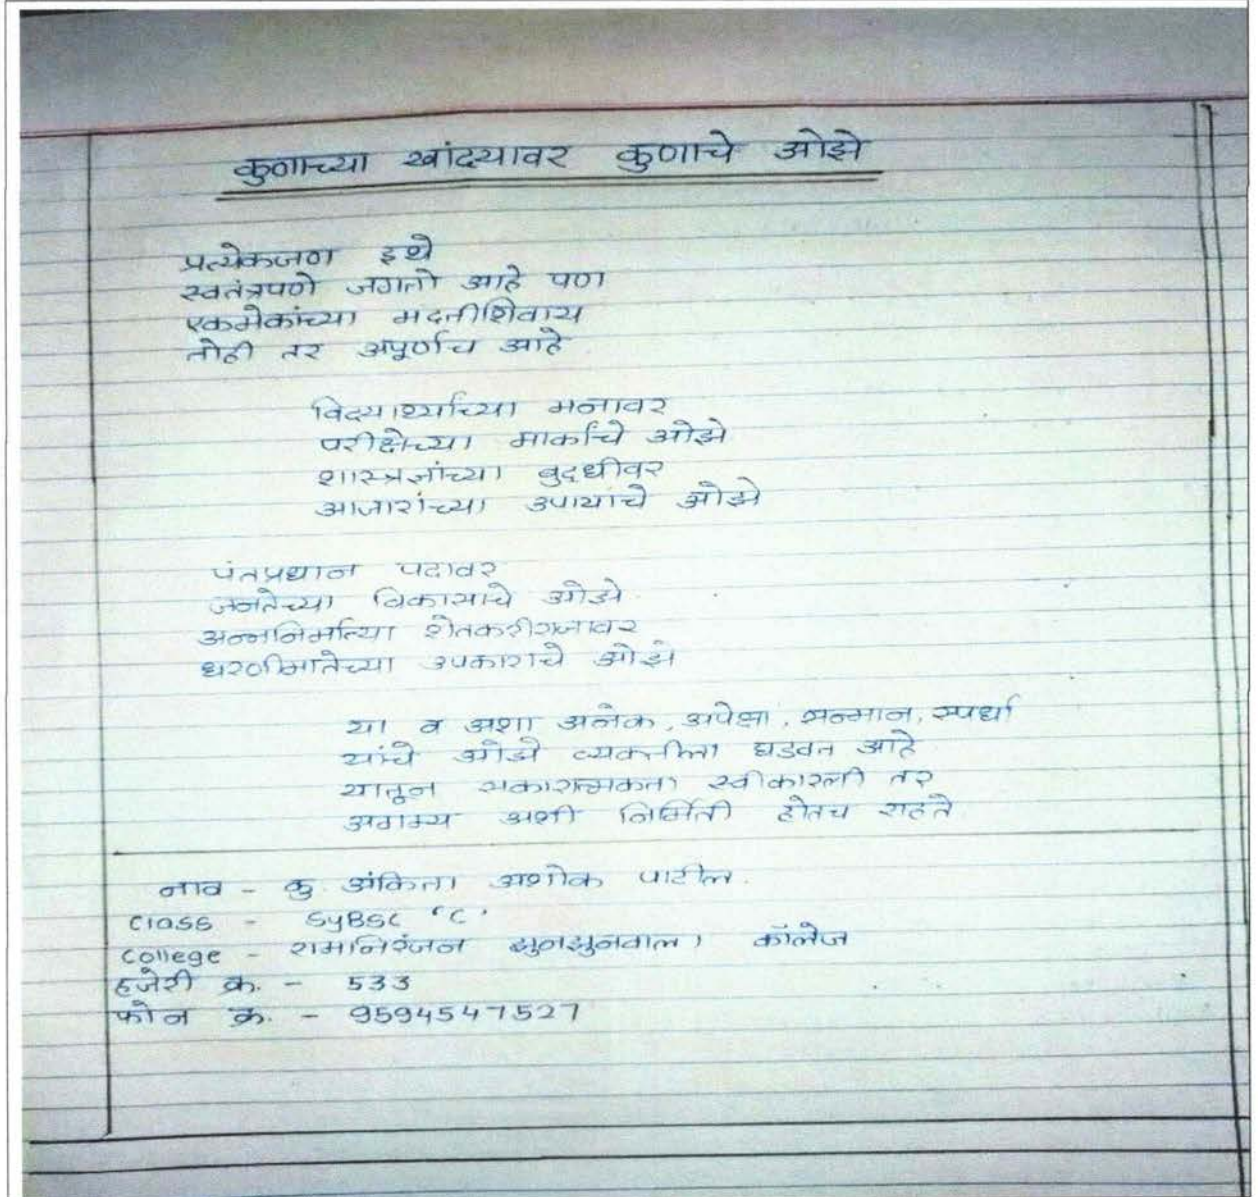 कुणाच्या खांद्यावर कुणाचे ओझे
प्रत्येकजण इथे
स्वतंत्रपणे जगतो आहे पण
एकमेकांच्या मदतीशिवाय
तोही तर अपूर्णच आहे.
विद्यार्थ्यांच्या मनावर
परीक्षेच्या मार्कांचे ओझे
शास्त्रज्ञांच्या बुद्धीवर
आजारांच्या उपायांचे ओझे
पंतप्रधान पदावर
जनतेच्या विकासाचे ओझे.
अन्ननिर्मात्या शेतकरीराजावर
धरणीमातेच्या उपकाराचे ओझे
या व अशा अनेक, अपेक्षा, सन्मान, स्पर्धा
यांचे ओझे व्यक्तीला घडवत आहे
यातून सकारात्मकता स्वीकारली तर
अगम्य अशी निर्मिती होतच राहते.
नाव - कु. अंकिता अशोक पाटील.
Class - SyBSC 'C'
College - रामनिरंजन झुनझुनवाला कॉलेज
हजेरी क्र. - 533
फोन क्र. - 9594547527